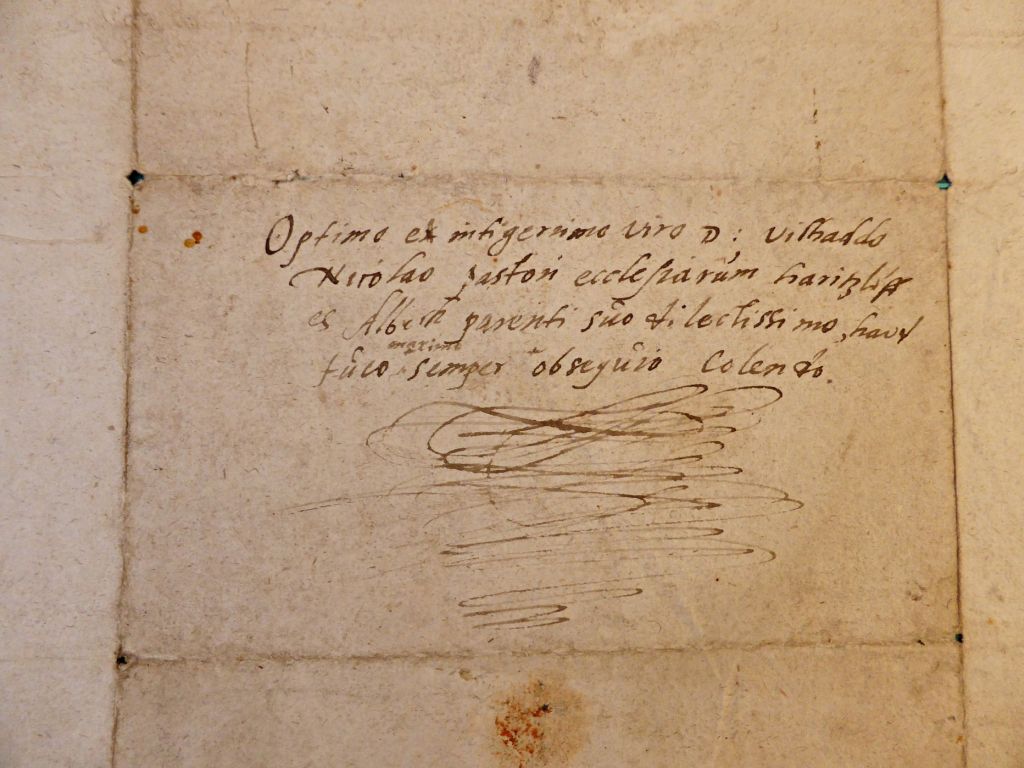 Optimo et intigerrimo viro D: Vilhaddo
Nicolao pastori ecclesiarum
et parenti suo dilectissimo, haud
fuco maximè semper obsequio Colendo.